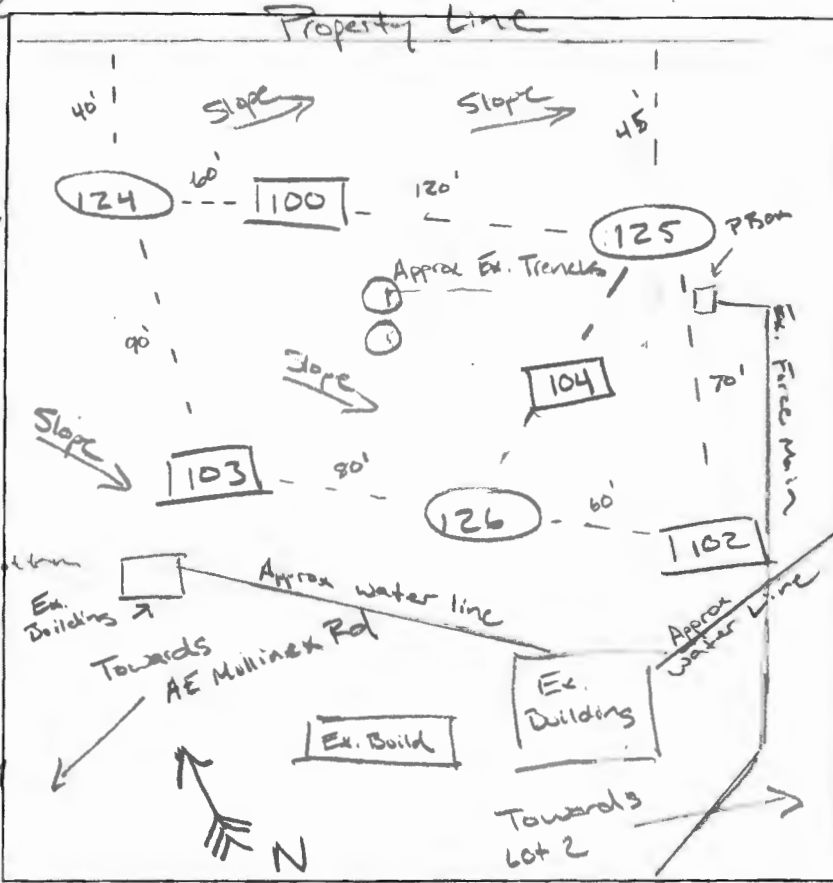 Property Line
40'
Slope
Slope
45'
124
60'
100
120'
125
PBox
Approx Ex. Trenches
90'
Slope
104
70'
Ex. Force Main
Slope
103
80'
126
60'
102
Ex.
Building
Approx water line
Approx
water Line
Towards
AE Mullinex Rd
Ex.
Building
Ex. Build
Towards
Lot 2
N